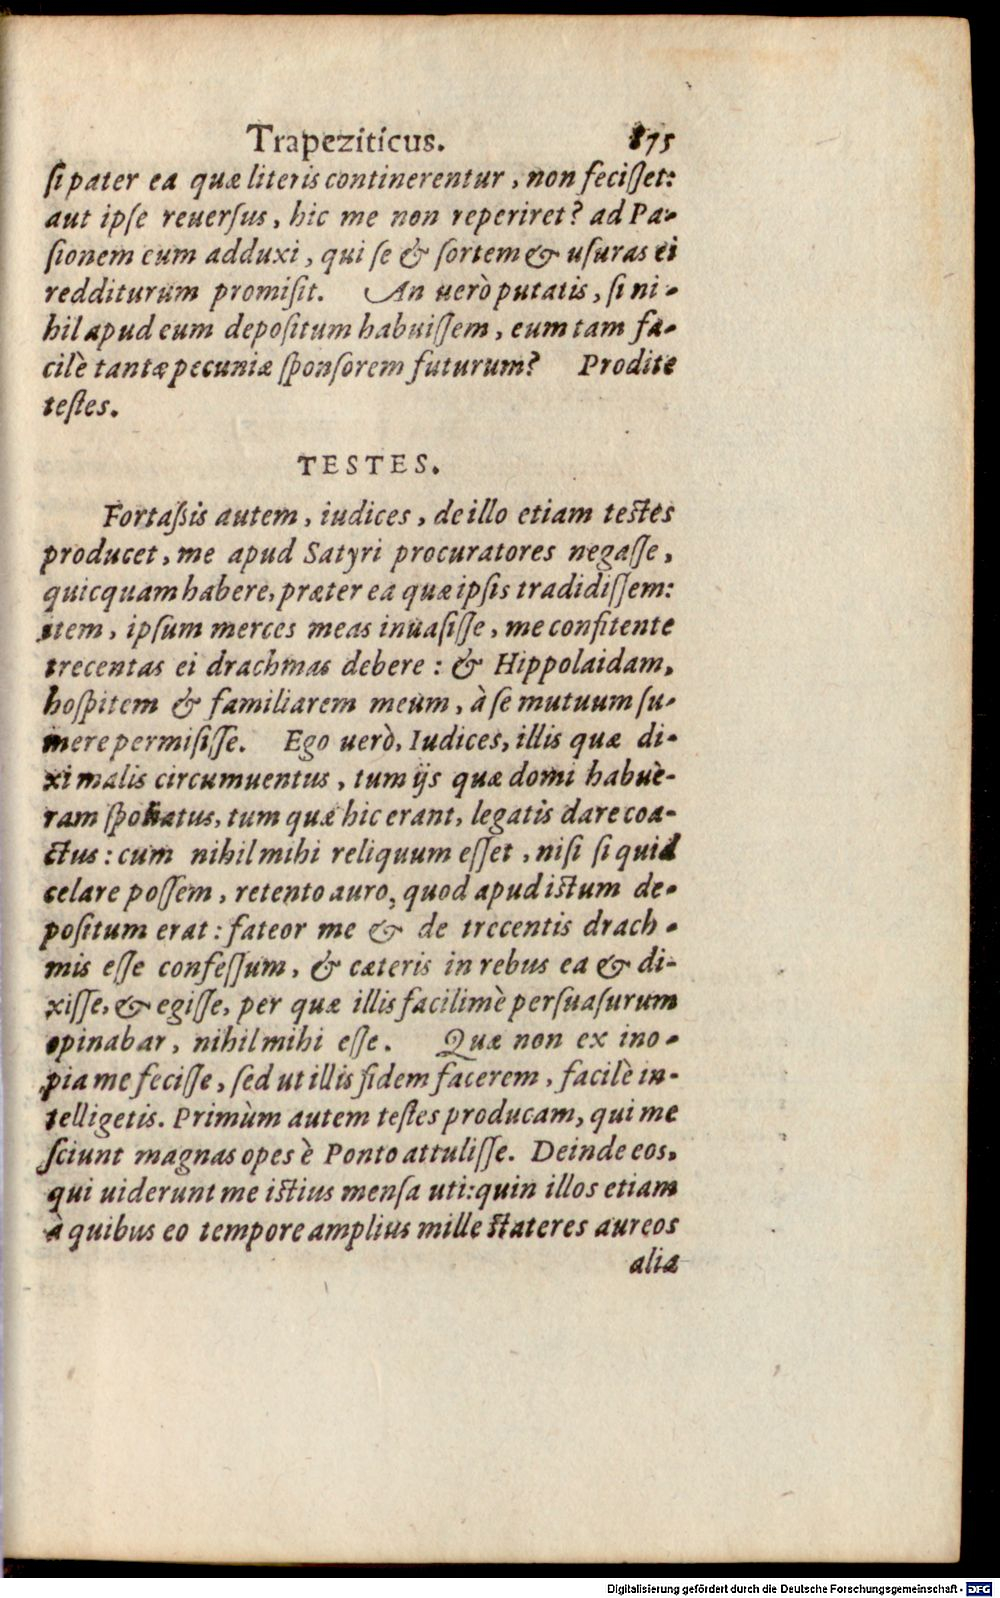 Trapeziticus. 875
si pater ea quæ literis continerentur, non fecisset:
aut ipse reuersus, hic me non reperiret? ad Pa-
sionem eum adduxi, qui se & sortem & usuras ei
redditurum promisit. An uerò putatis, si ni-
hil apud eum depositum habuissem, eum tam fa-
cilè tantæ pecuniæ sponsorem futurum? Prodite
testes.
TESTES.
Fortaßis autem, iudices, de illo etiam testes
producet, me apud Satyri procuratores negasse,
quicquam habere, præter ea quæ ipsis tradidissem:
item, ipsum merces meas inuasisse, me confitente
trecentas ei drachmas debere: & Hippolaidam,
hospitem & familiarem meum, à se mutuum su-
mere permisisse. Ego uerò, Iudices, illis quæ di-
xi malis circumuentus, tum ijs quæ domi habuè-
ram spoliatus, tum quæ hic erant, legatis dare coa-
ctus: cum nihil mihi reliquum esset, nisi si quid
celare possem, retento auro, quod apud istum de-
positum erat: fateor me & de trecentis drach-
mis esse confessum, & cæteris in rebus ea & di-
xisse, & egisse, per quæ illis facilimè persuasurum
opinabar, nihil mihi esse. Quæ non ex ino-
pia me fecisse, sed ut illis fidem facerem, facilè in-
telligetis. Primùm autem testes producam, qui me
sciunt magnas opes è Ponto attulisse. Deinde eos,
qui uiderunt me istius mensa uti: quin illos etiam
à quibus eo tempore amplius mille stateres aureos
alia
Digitalisierung gefördert durch die Deutsche Forschungsgemeinschaft - DFG